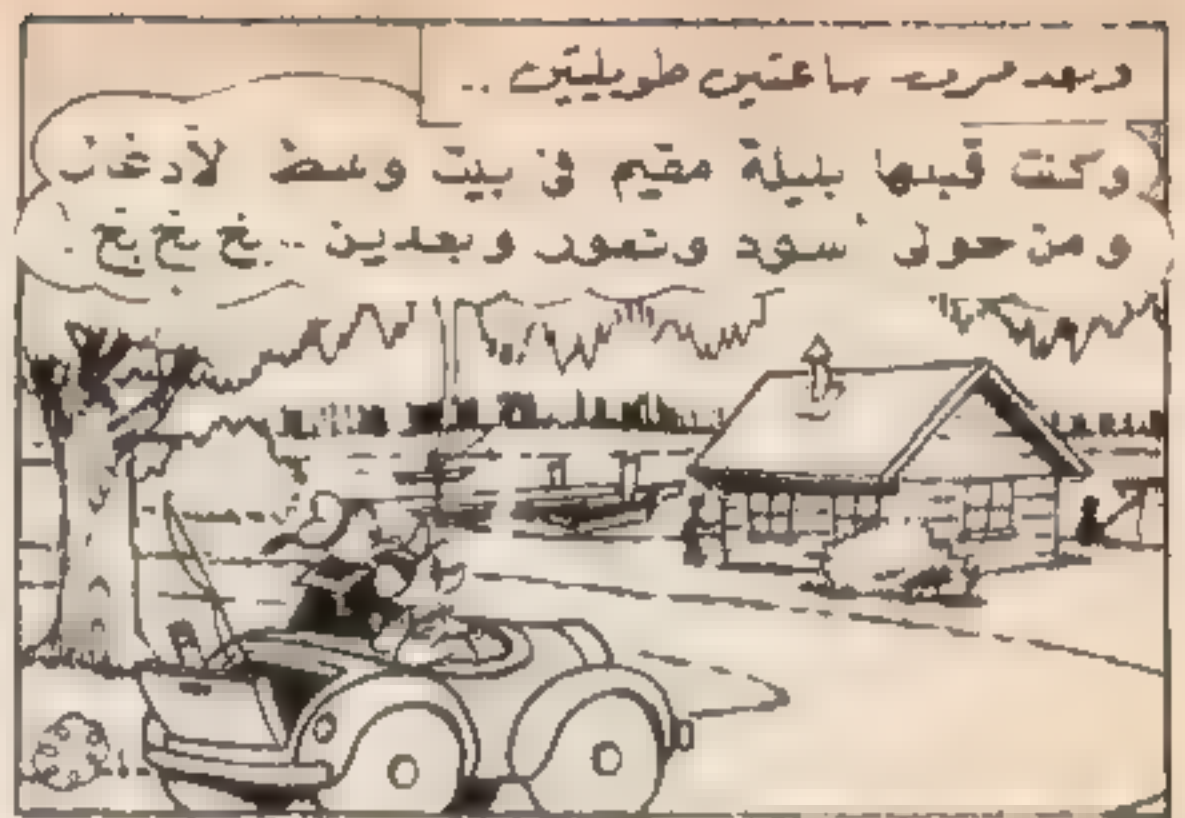 وبعد مرور ساعتين طويلتين ..
وكنت قبلها بليلة مقيم فى بيت وسط الأدغال
ومن حولى أسود ونمور وبعدين .. بخ بخ بخ